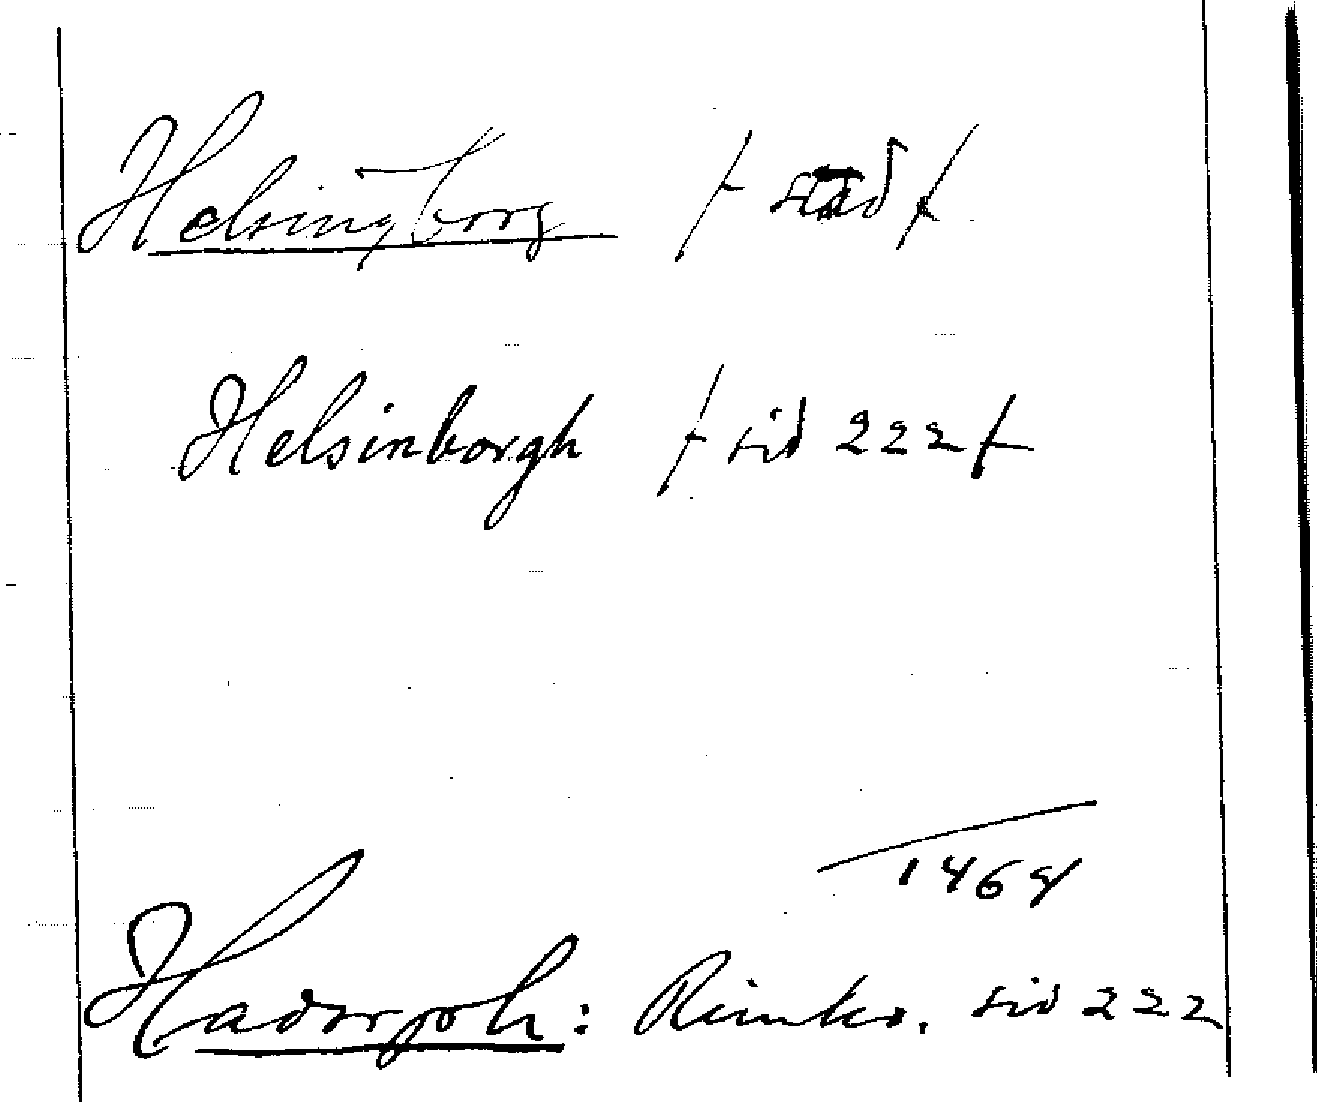 Helsingborg /stad/
Helsinborgh /sid 222/
1468
Hadorph: Rimkr. sid 222